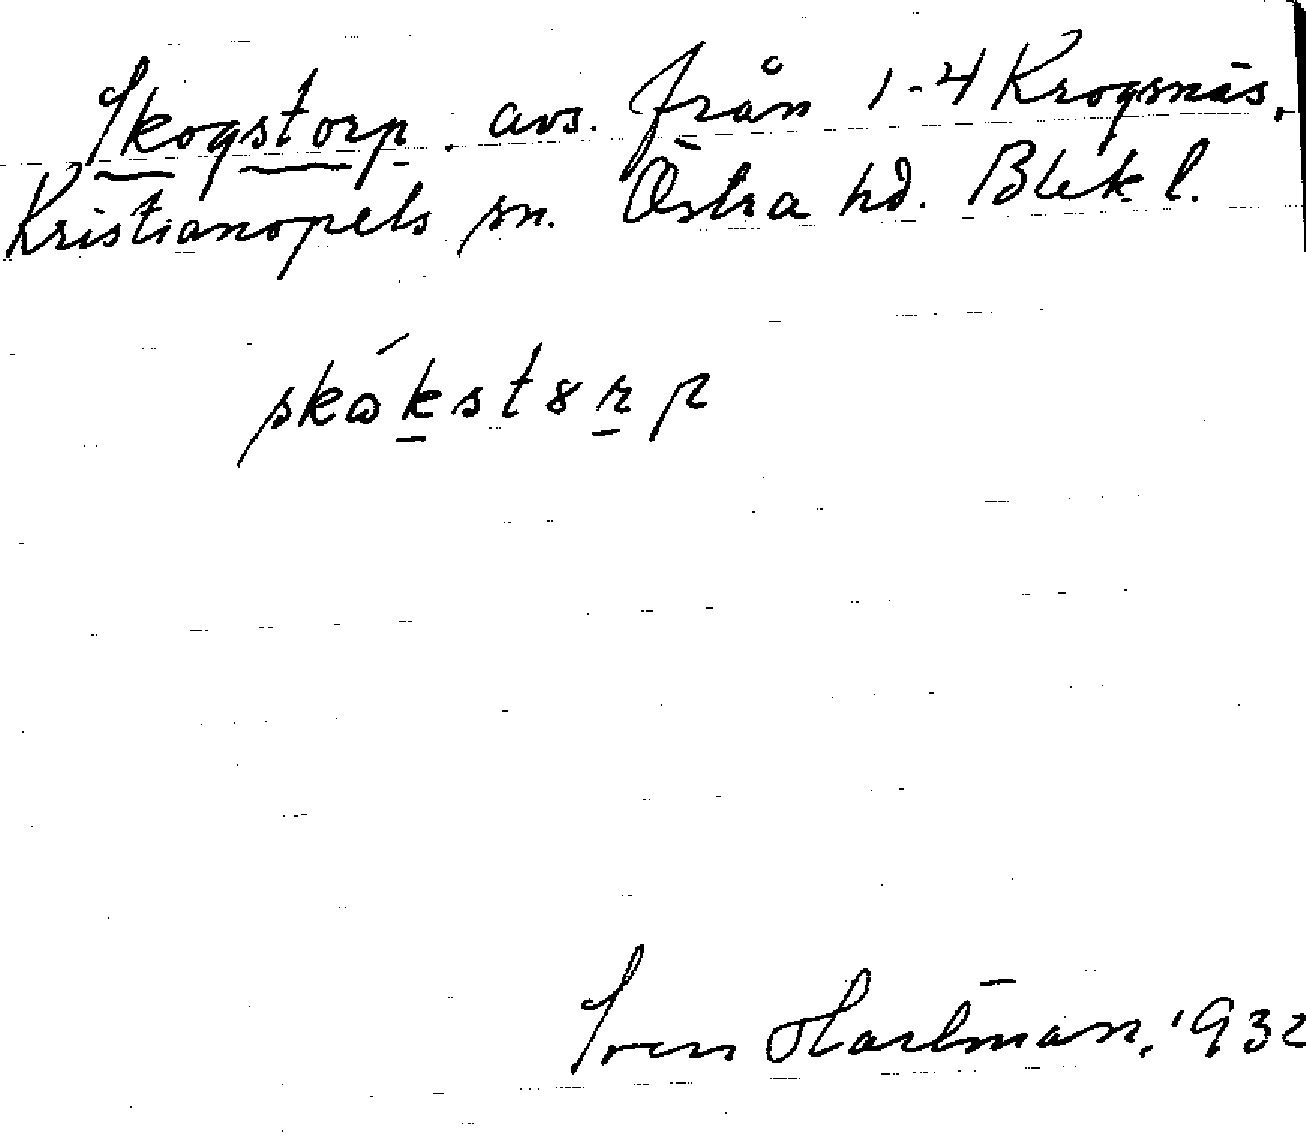 Skogstorp. avs. från 1-4 Krogsnäs,
Kristianopels sn. Östra hd. Blek. l.
skɷ́kst8rp
Sven Hartman, 1932